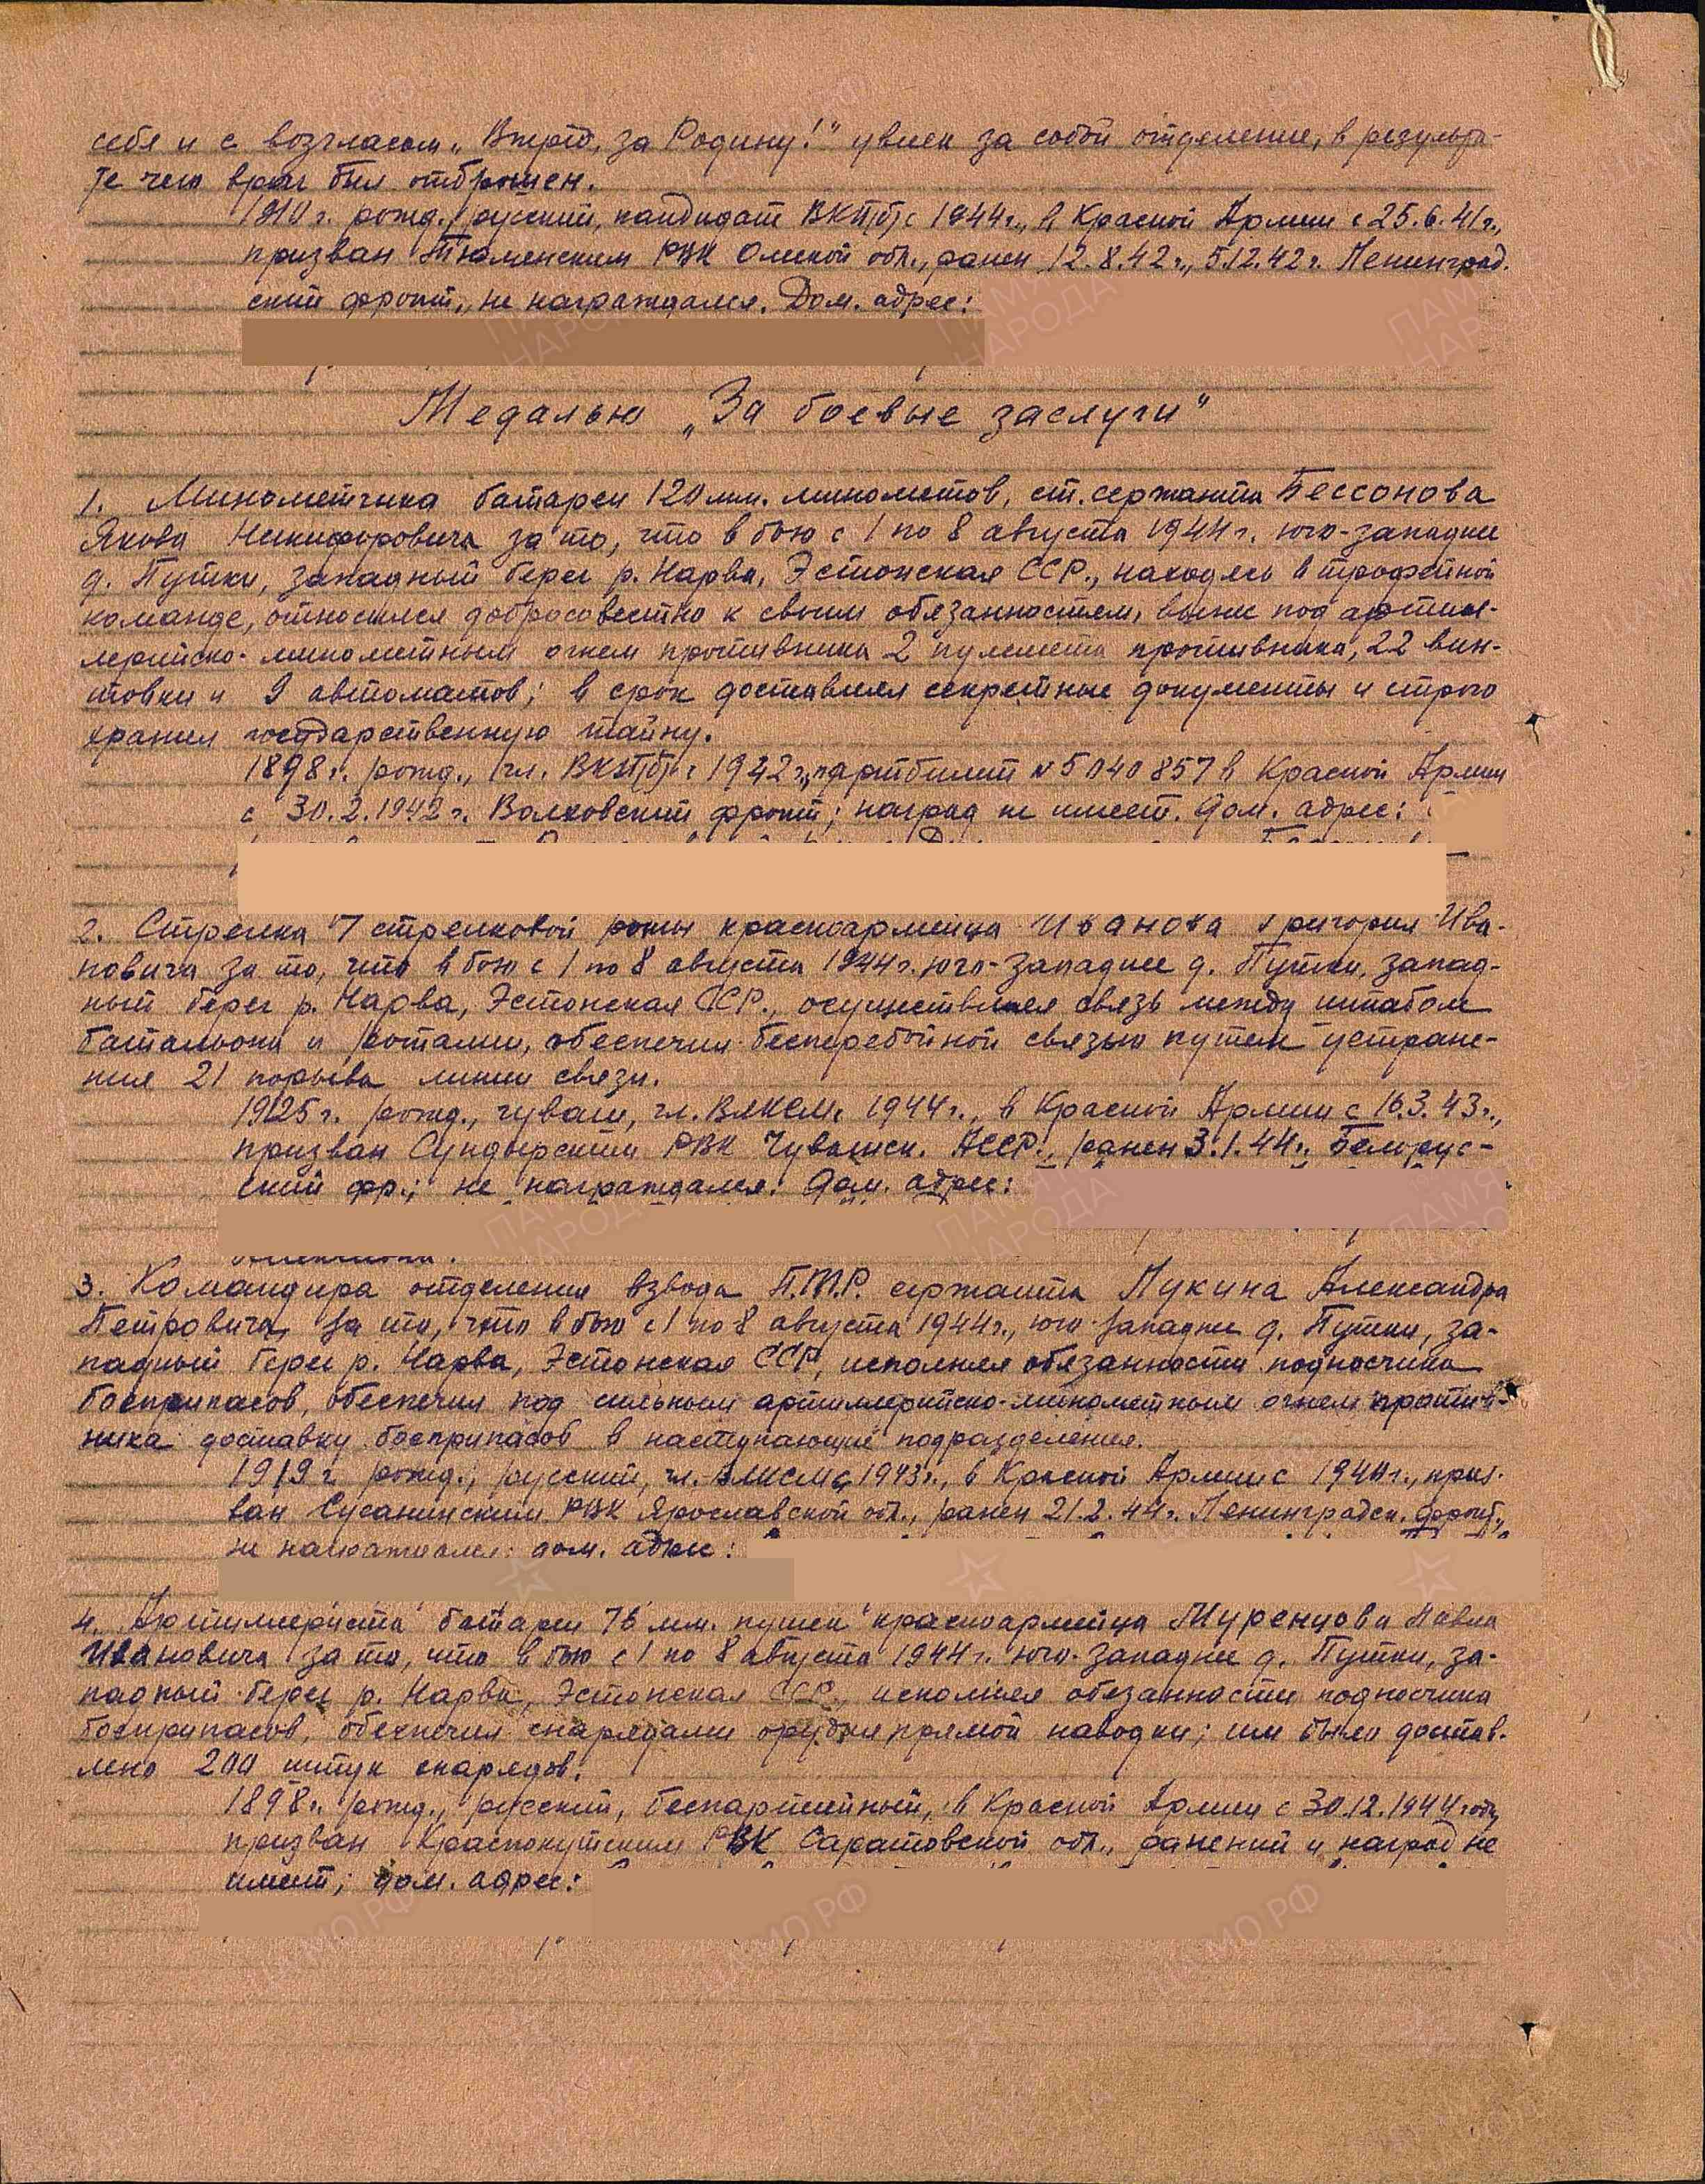 себя и с возгласом „Вперед, за Родину!" увлек за собой отделение, в результа-
те чего враг был отброшен.
1910 г. рожд., русский, кандидат ВКП(б) с 1944 г., в Красной Армии с 25.6.41 г.,
призван Тюменским РВК Омской обл., ранен 12.8.42 г., 5.12.42 г. Ленинград.
ский фронт, не награждался. Дом. адрес:
Медалью „За боевые заслуги"
1. Минометчика батареи 120 мм. минометов, ст. сержанта Бессонова
Якова Никифоровича за то, что в бою с 1 по 8 августа 1944 г. юго-западнее
д. Путки, западный берег р. Нарва, Эстонская ССР., находясь в трофейной
команде, относился добросовестно к своим обязанностям, вынес под артил-
лерийско-минометным огнем противника 2 пулемета противника, 22 вин-
товки и 9 автоматов; в срок доставлял секретные документы и строго
хранил государственную тайну.
1898 г. рожд., чл. ВКП(б) с 1942 г., партбилет № 5040857 в Красной Армии
с 30.2.1942 г. Волховский фронт; наград не имеет. Дом. адрес:
2. Стрелка 7 стрелковой роты красноармейца Иванова Григория Ива-
новича за то, что в бою с 1 по 8 августа 1944 г. юго-западнее д. Путки, запад-
ный берег р. Нарва, Эстонская ССР., осуществляя связь между штабом
батальона и ротами, обеспечил бесперебойной связью путем устране-
ния 21 порыва линии связи.
1925 г. рожд., чуваш, чл. ВЛКСМ с 1944 г., в Красной Армии с 16.3.43 г.,
призван Сундырским РВК Чувашск. АССР., ранен 3.1.44 г. Белорус-
ский фр.; не награждался. Дом. адрес:
3. Командира отделения взвода П.Т.Р. сержанта Лукина Александра
Петровича, за то, что в бою с 1 по 8 августа 1944 г., юго-западнее д. Путки, за-
падный берег р. Нарва, Эстонская ССР, исполняя обязанности подносчика
боеприпасов, обеспечил под сильным артиллерийско-минометным огнем против-
ника доставку боеприпасов в наступающие подразделения.
1919 г. рожд., русский, чл. ВЛКСМ с 1943 г., в Красной Армии с 1944 г., приз-
ван Сусанинским РВК Ярославской обл., ранен 21.2.44 г. Ленинградск. фронт,
не награждался. дом. адрес:
4. Артиллериста батареи 76 мм. пушек красноармейца Муренцова Павла
Ивановича за то, что в бою с 1 по 8 августа 1944 г. юго-западнее д. Путки, за-
падный берег р. Нарва, Эстонская ССР., исполняя обязанности подносчика
боеприпасов, обеспечил снарядами орудия прямой наводки; им были достав-
лено 200 штук снарядов.
1898 г. рожд., русский, беспартийный, в Красной Армии с 30.12.1944 году,
призван Краснокутским РВК Саратовской обл., ранений и наград не
имеет; дом. адрес: